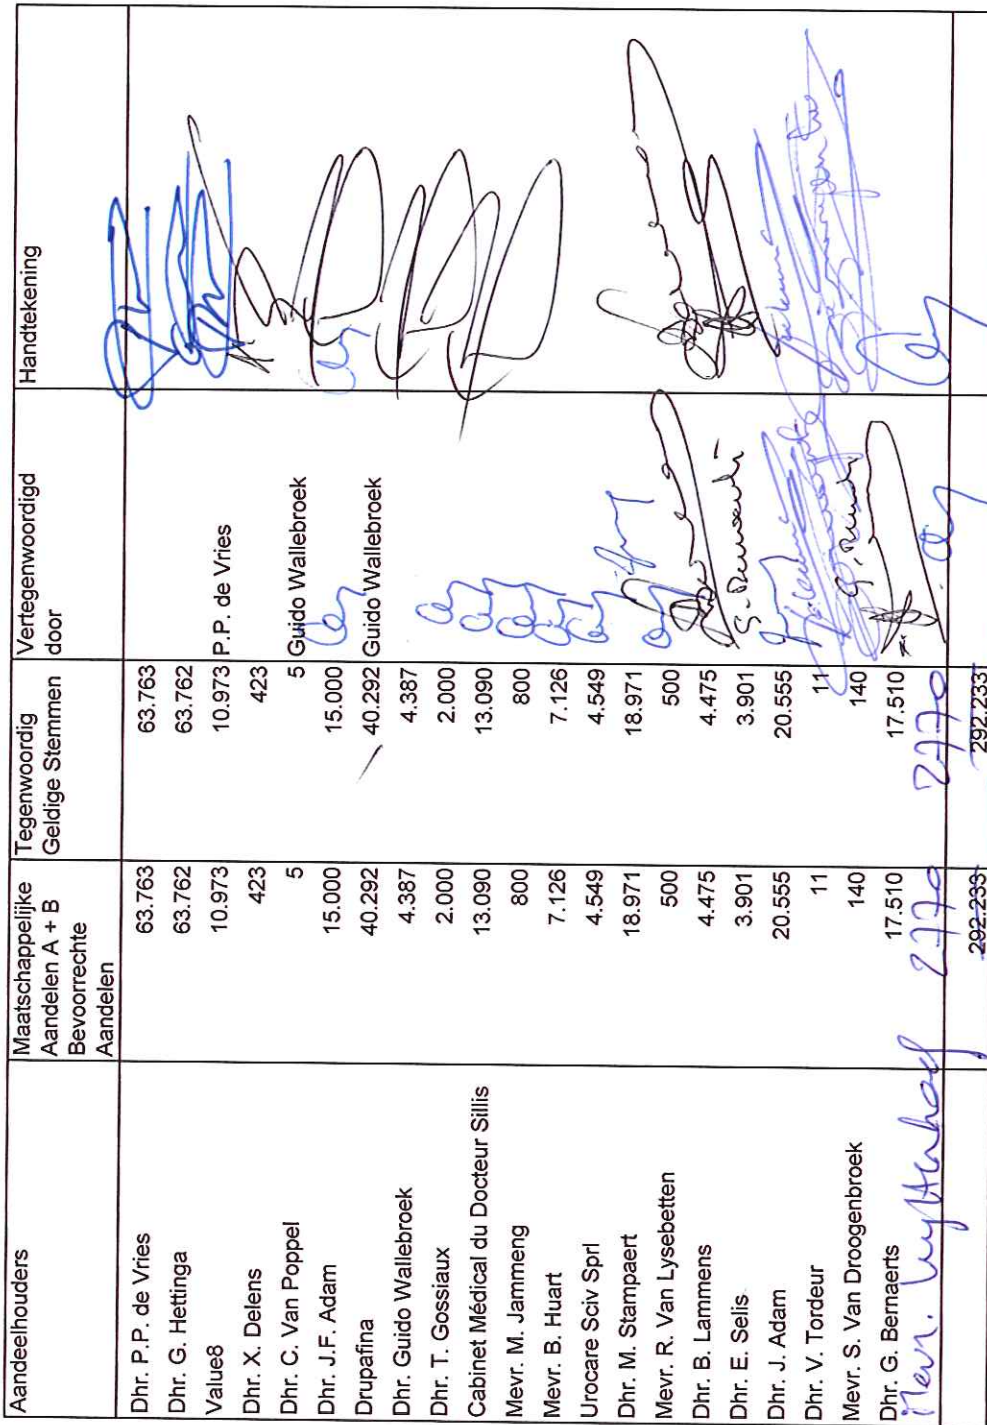 Aandeelhouders Maatschappelijke Tegenwoordig Vertegenwoordigd Handtekening
Aandelen A + B Geldige Stemmen door
Bevoorrechte
Aandelen
Dhr. P.P. de Vries 63.763 63.763
Dhr. G. Hettinga 63.762 63.762
Value8 10.973 10.973 P.P. de Vries
Dhr. X. Delens 423 423
Dhr. C. Van Poppel 5 5 Guido Wallebroek
Dhr. J.F. Adam 15.000 15.000
Drupafina 40.292 40.292 Guido Wallebroek
Dhr. Guido Wallebroek 4.387 4.387
Dhr. T. Gossiaux 2.000 2.000
Cabinet Médical du Docteur Sillis 13.090 13.090
Mevr. M. Jammeng 800 800
Mevr. B. Huart 7.126 7.126
Urocare Sciv Sprl 4.549 4.549
Dhr. M. Stampaert 18.971 18.971
Mevr. R. Van Lysebetten 500 500
Dhr. B. Lammens 4.475 4.475
Dhr. E. Selis 3.901 3.901
Dhr. J. Adam 20.555 20.555
Dhr. V. Tordeur 11 11
Mevr. S. Van Droogenbroek 140 140
Dhr. G. Bernaerts 17.510 17.510
Mevr. 2770 2770
292.233 292.233